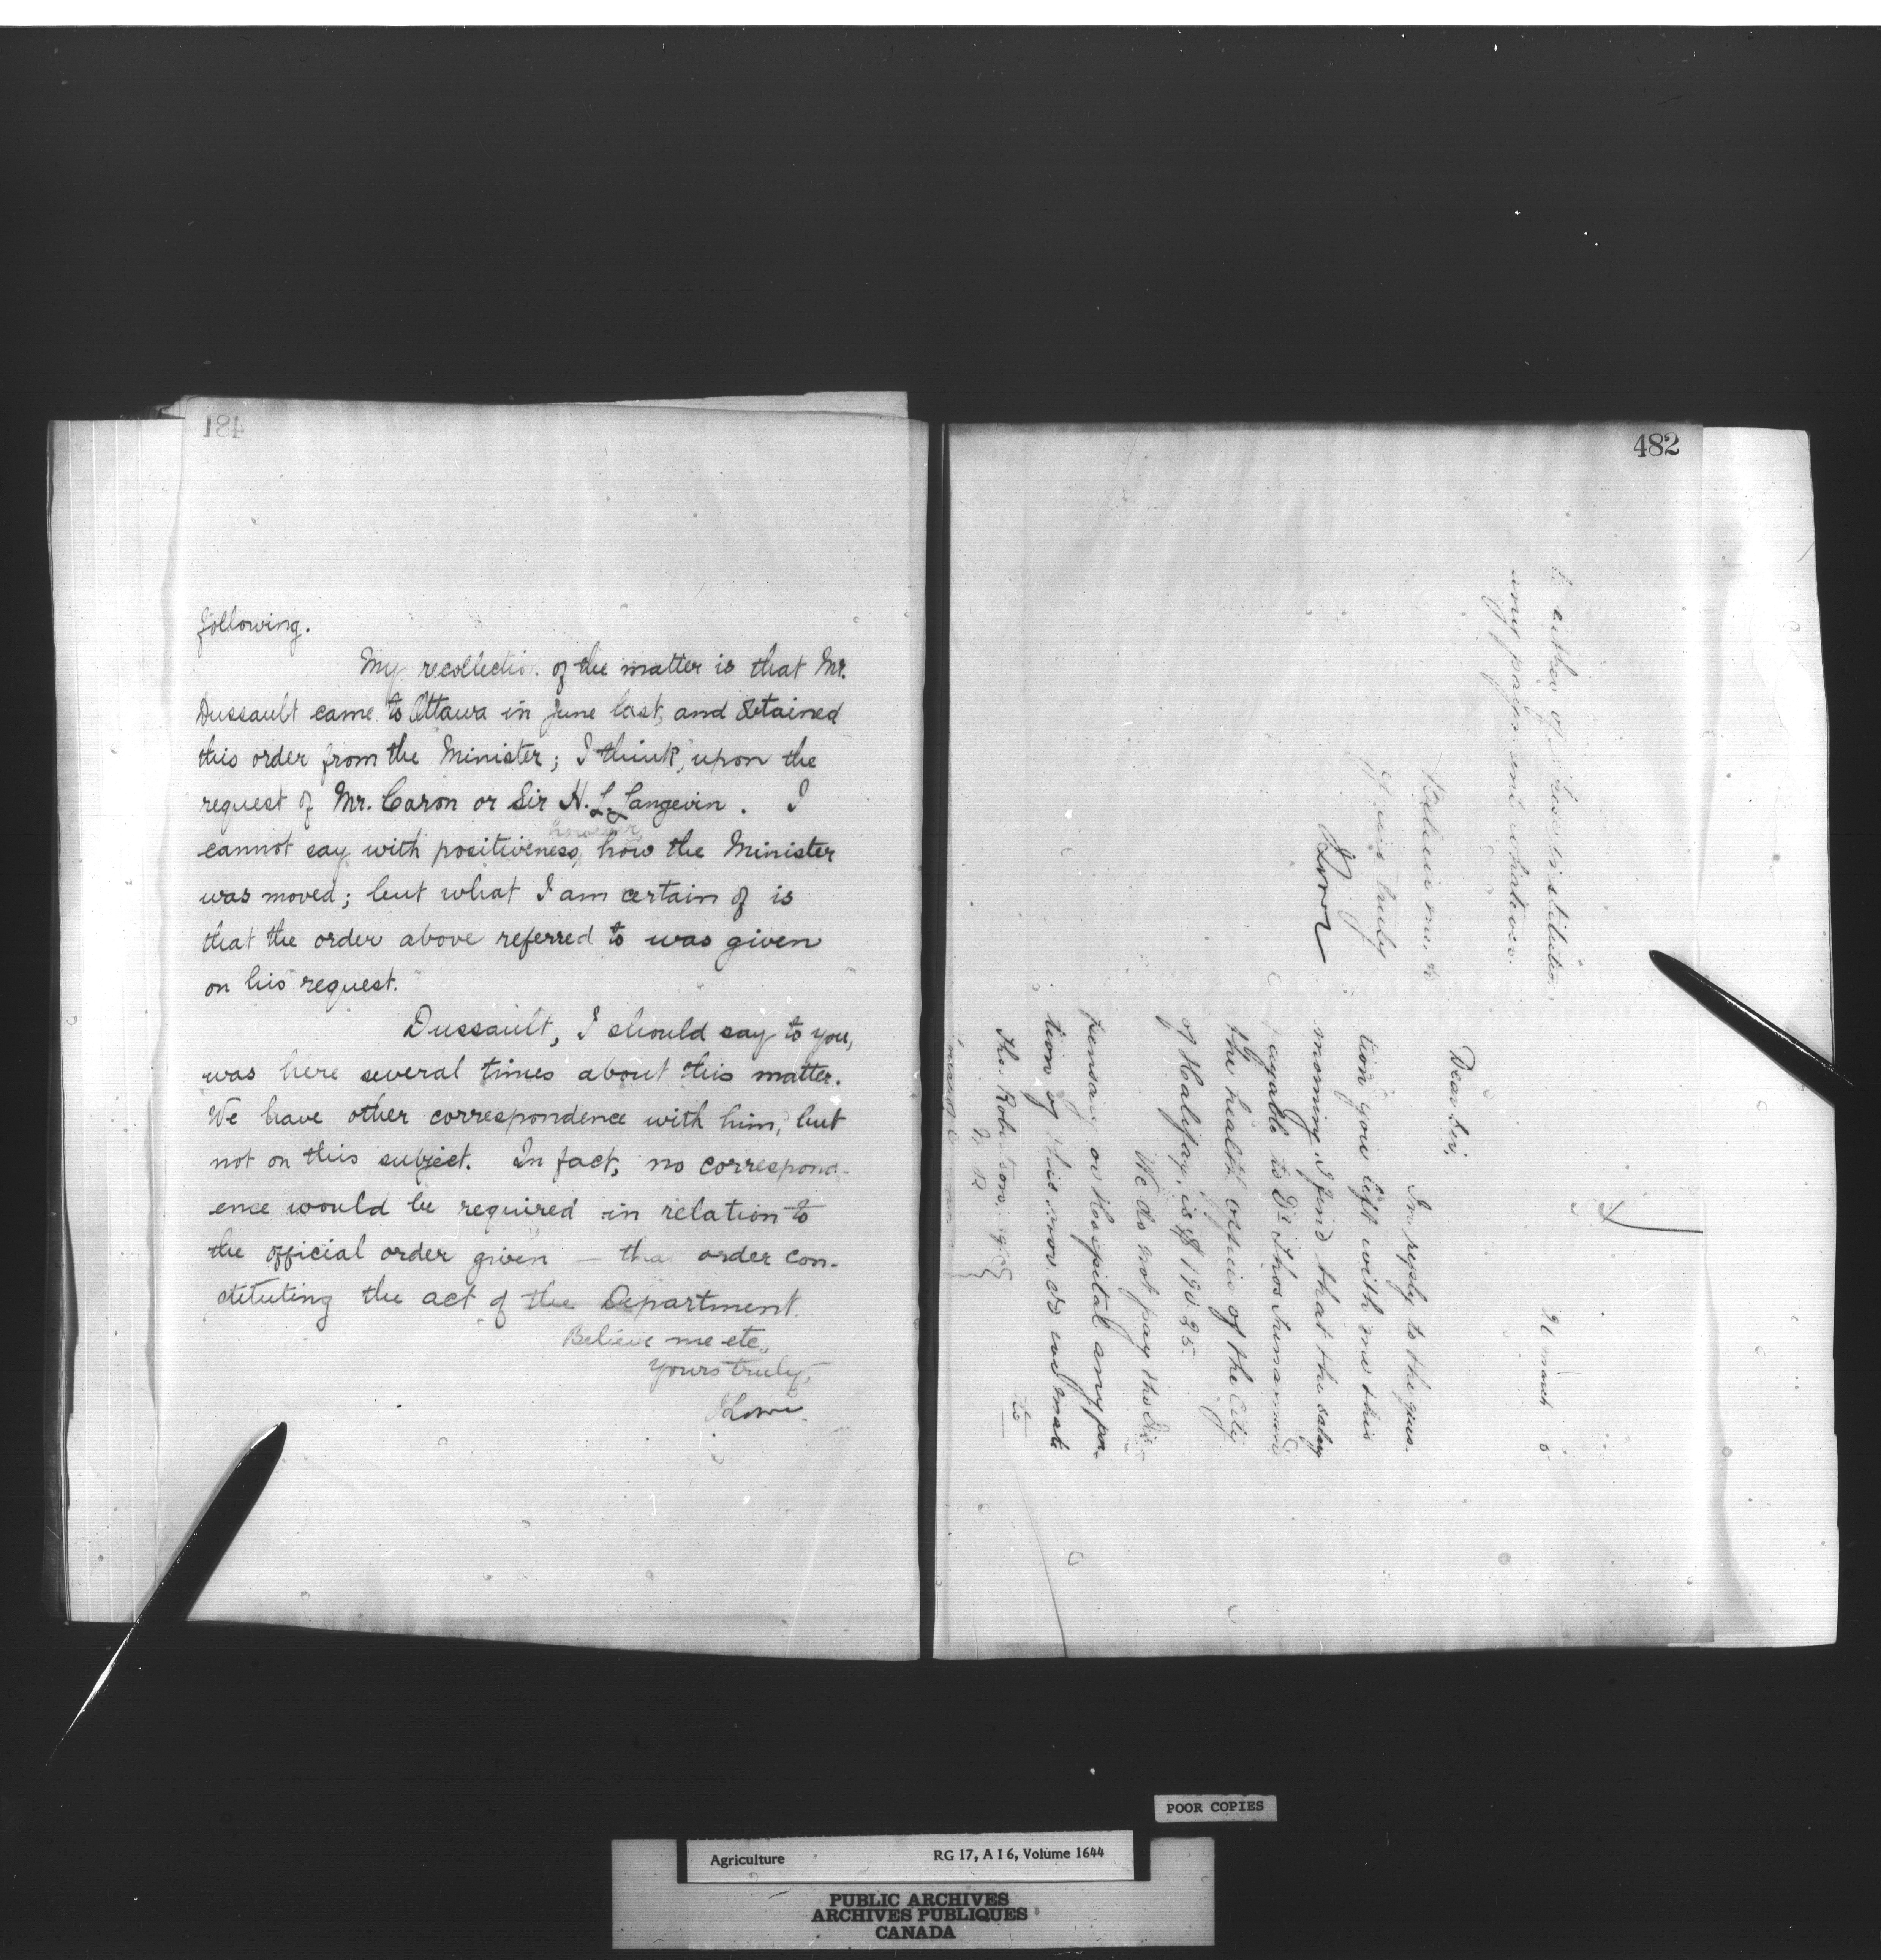 481
following.
My recollection of the matter is that Mr.
Dussault came to Ottawa in June last, and obtained
this order from the Minister; I think, upon the
request of Mr. Caron or Sir H. L. Langevin. I
however
cannot say with positiveness, how the Minister
was moved; but what I am certain of is
that the order above referred to was given
on his request.
Dussault, I should say to you,
was here several times about this matter.
We have other correspondence with him, but
not on this subject. In fact, no correspond-
ence would be required in relation to
the official order given — the order con-
stituting the act of the Department.
Believe me etc.,
yours truly,
J Lowe
482
March 5
Dear Sir,
In reply to the ques-
tion you left with me this
morning, I find that the salary
payable to Dr Thos
by the health officer of the City
of Halifax, is $
We do not pay the Dis-
pensary or Hospital any por-
tion of this
Robertson
to either of these institutions
any payment whatever.
Believe me,
Yours truly
J Lowe
POOR COPIES
Agriculture RG 17, A I 6, Volume 1644
PUBLIC ARCHIVES
ARCHIVES PUBLIQUES
CANADA